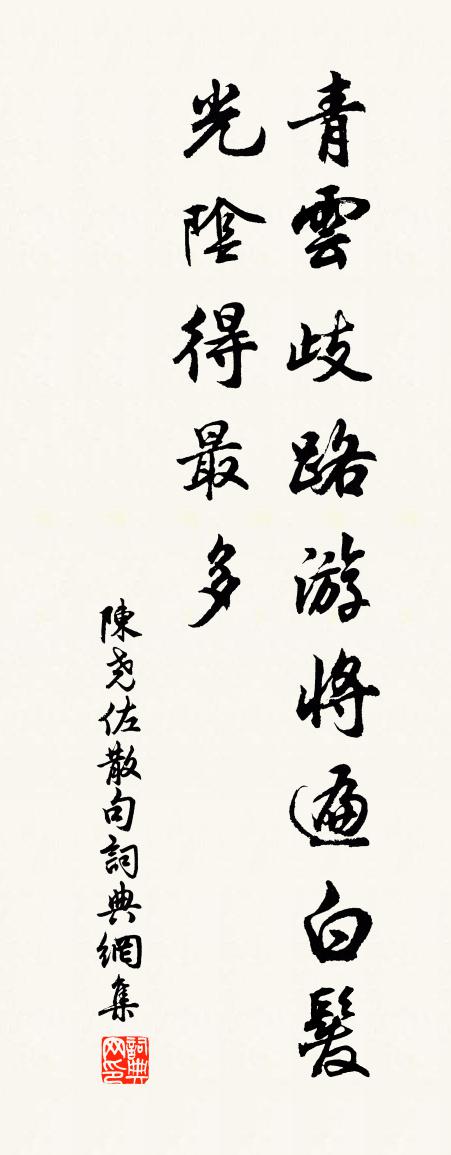 青雲歧路游將遍白髮
光陰得最多
陳堯佐散句詞典網集
詞典网印